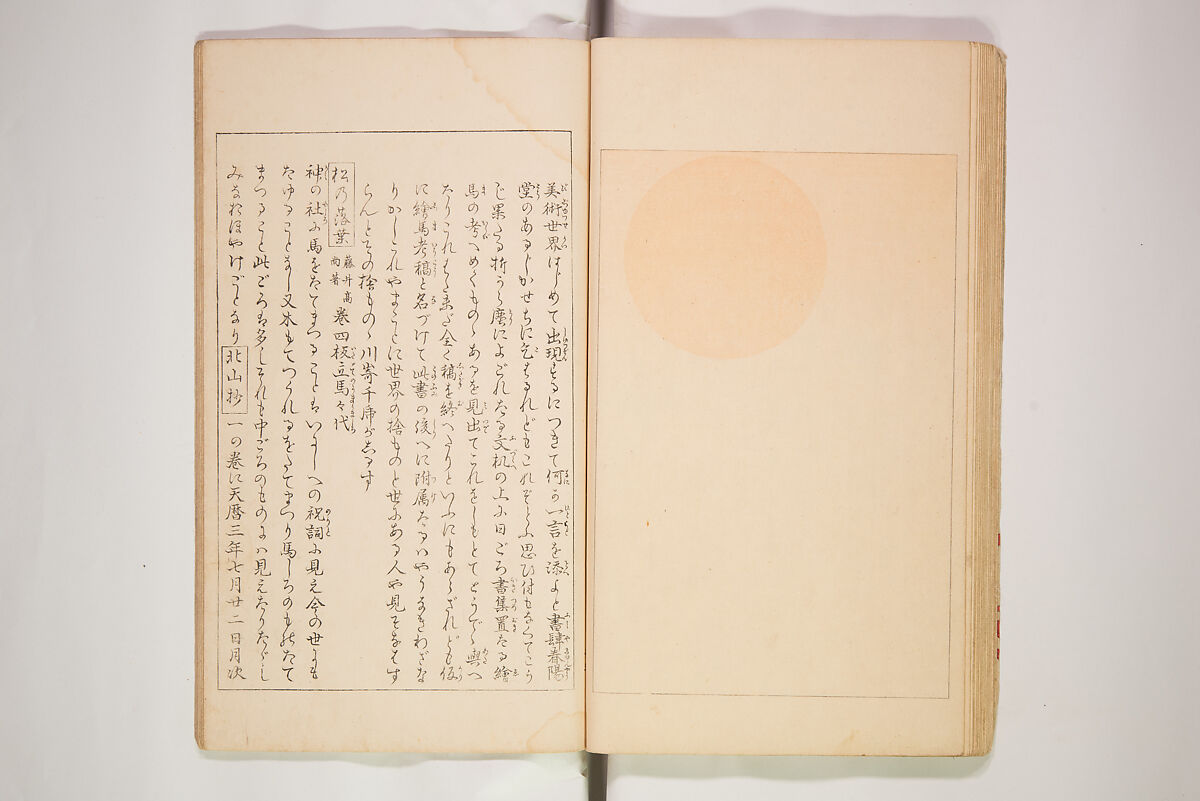 美術世界はじめて出現するにつきて何か一言を添よと書肆春陽
堂のあるじかせちに乞はるれどもこれぞといふ思ひ付もなくてこう
じ果たる折から塵によごれたる文机の上に日ごろ書集置たる繪
馬の考へめくものゝあるを見出てこれをしもとてとうでゝ與へ
たりこれもとより未だ全く稿を終へたりといふにもあらざれども仮
に繪馬考稿と名づけて此書の後へに附属たるハやうなきわざな
りかしこれやまことに世界の捨ものと世にある人や見そなはす
らんとての捨ものゝ川嵜千虎がしるす
松乃落葉 藤井高尚著 巻四板立馬々代
神の社に馬をたてまつることはいにしへの祝詞に見え今の世にも
たゆることなし又木もてつくれるをたてまつり馬しろのものたて
まつること此ごろは多しそれも中ごろのものにハ見えたりただし
みなおほやけごとなり北山抄一の巻に天暦三年七月廿二日月次